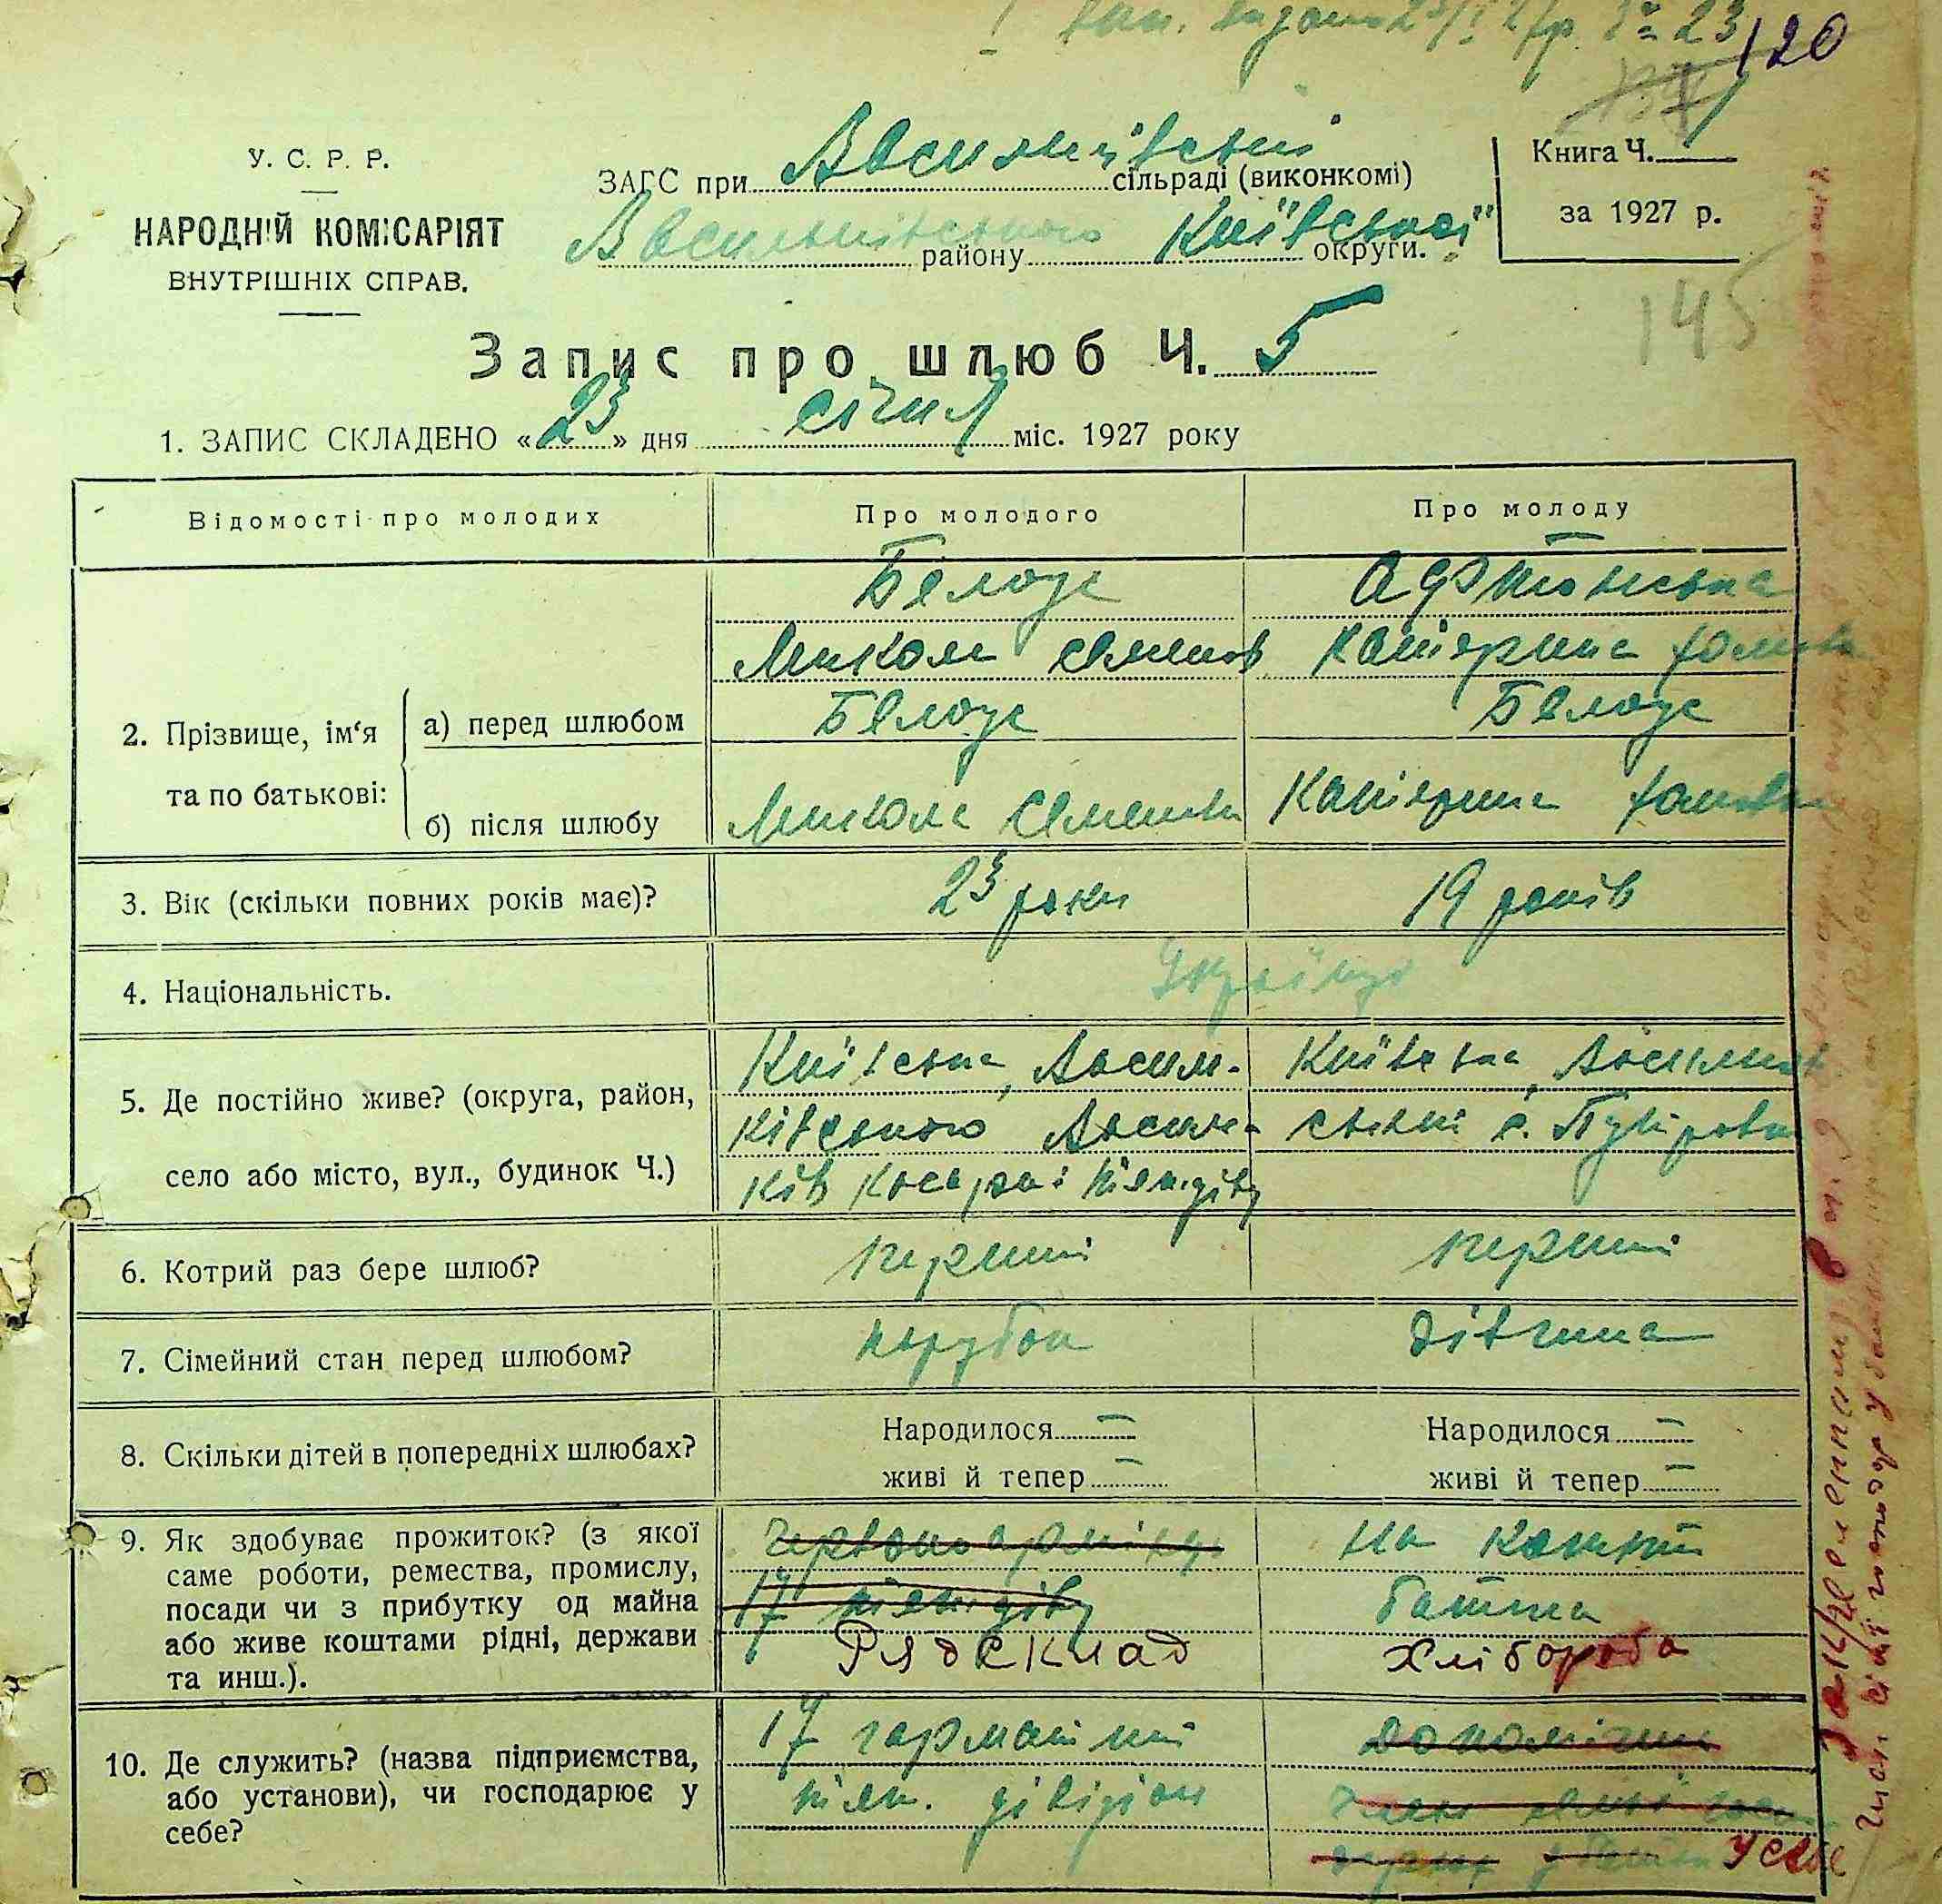 120
У. С. Р. Р.
НАРОДНІЙ КОМІСАРІЯТ
ВНУТРІШНІХ СПРАВ.
ЗАГС при Васильківській сільраді (виконкомі)
Васильківського району Київської округи.
Книга Ч. 1
за 1927 р.
145
Запис про шлюб Ч. 5
1. ЗАПИС СКЛАДЕНО «23» дня січня міс. 1927 року
Відомості про молодих
Про молодого
Про молоду
2. Прізвище, ім‘я
та по батькові:
а) перед шлюбом
б) після шлюбу
Білоус
Микола Семенов
Білоус
Микола Семенов
Катерина
Білоус
Катерина
3. Вік (скільки повних років має)?
23 роки
19 років
4. Національність.
Українці
5. Де постійно живе? (округа, район,
село або місто, вул., будинок Ч.)
Київська, Василь-
ківського Василь-
ків
Київська, Васильків
ський с.
6. Котрий раз бере шлюб?
перший
перший
7. Сімейний стан перед шлюбом?
парубок
дівчина
8. Скільки дітей в попередніх шлюбах?
Народилося —
живі й тепер —
Народилося —
живі й тепер —
9. Як здобуває прожиток? (з якої
саме роботи, ремества, промислу,
посади чи з прибутку од майна
або живе коштами рідні, держави
та инш.).
17
Рядсклад
На кошти
батька
Хлібороба
10. Де служить? (назва підприємства,
або установи), чи господарює у
себе?
17 гарматний
дівізіон
у себе